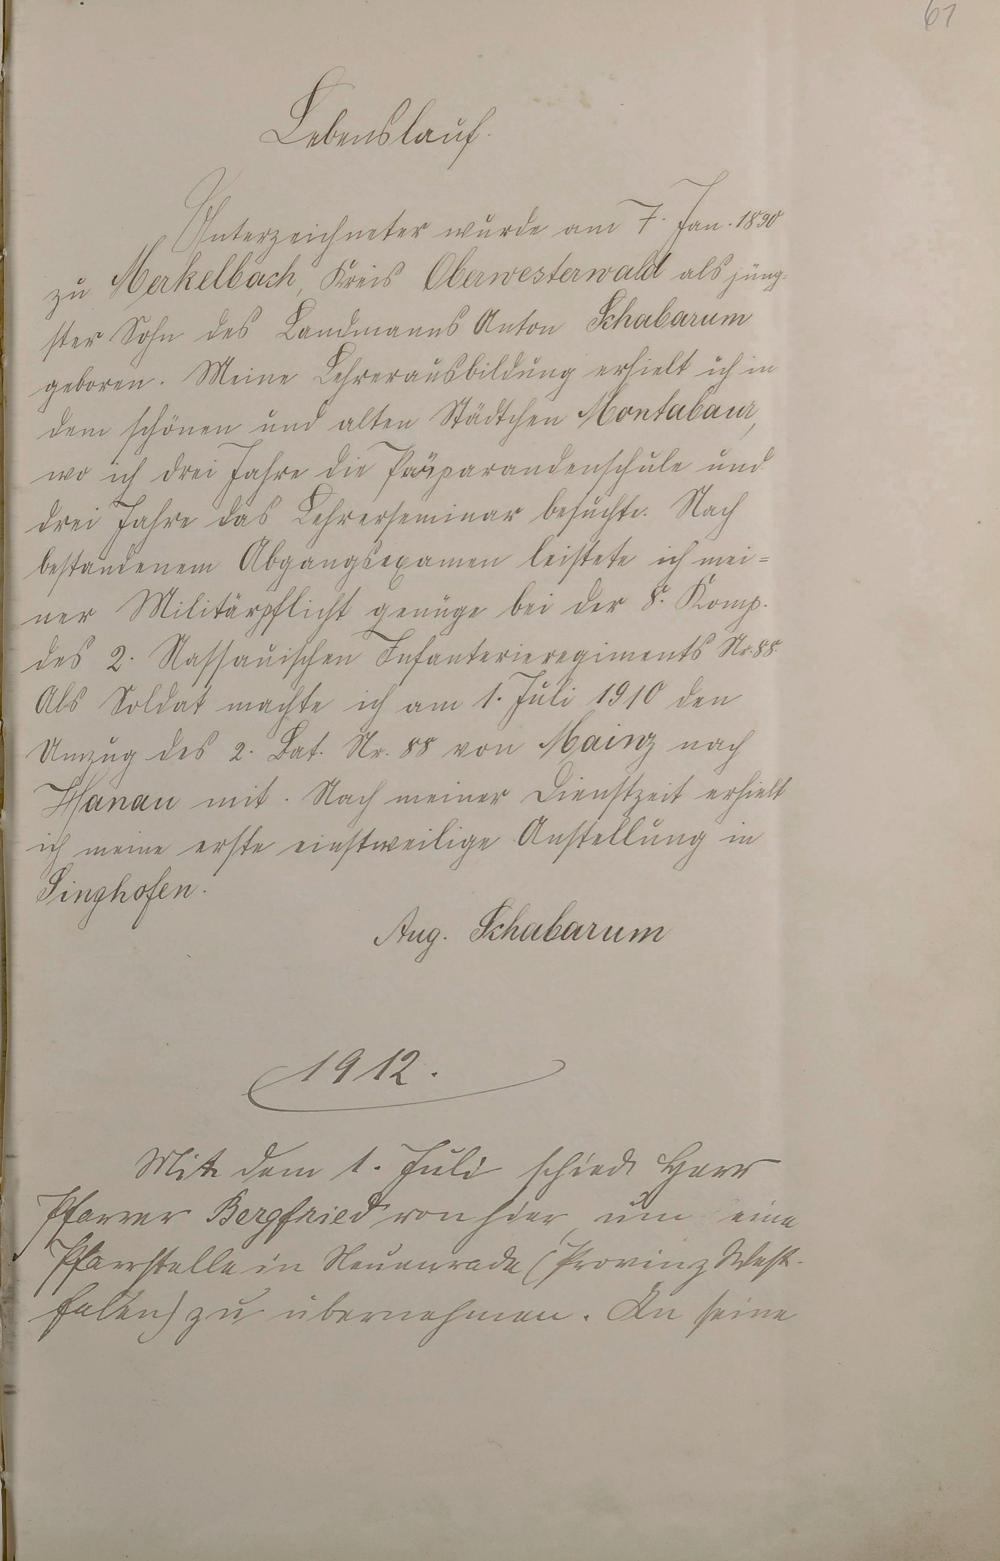 61
Lebenslauf.
Unterzeichneter wurde am 7. Jan. 1890
zu Merkelbach, Kreis Oberwesterwald als jüng-
ster Sohn des Landmanns Anton Schabarum
geboren. Meine Lehrerausbildung erhielt ich in
dem schönen und alten Städtchen Montabaur,
wo ich drei Jahre die Präparandenschule und
drei Jahre das Lehrerseminar besuchte. Nach
bestandenem Abgangsexamen leistete ich mei=
ner Militärpflicht genüge bei der 8. Komp.
des 2. Nassauischen Infanterieregiments Nr. 88.
Als Soldat machte ich am 1. Juli 1910 den
Umzug des 2. Bat. Nr. 88 von Mainz nach
Hanau mit. Nach meiner Dienstzeit erhielt
ich meine erste einstweilige Anstellung in
Singhofen.
Aug. Schabarum
1912.
Mit dem 1. Juli schied Herr
Pfarrer Bergfried von hier, um eine
Pfarrstelle in Neuenrade (Provinz West-
falen) zu übernehmen. An seine